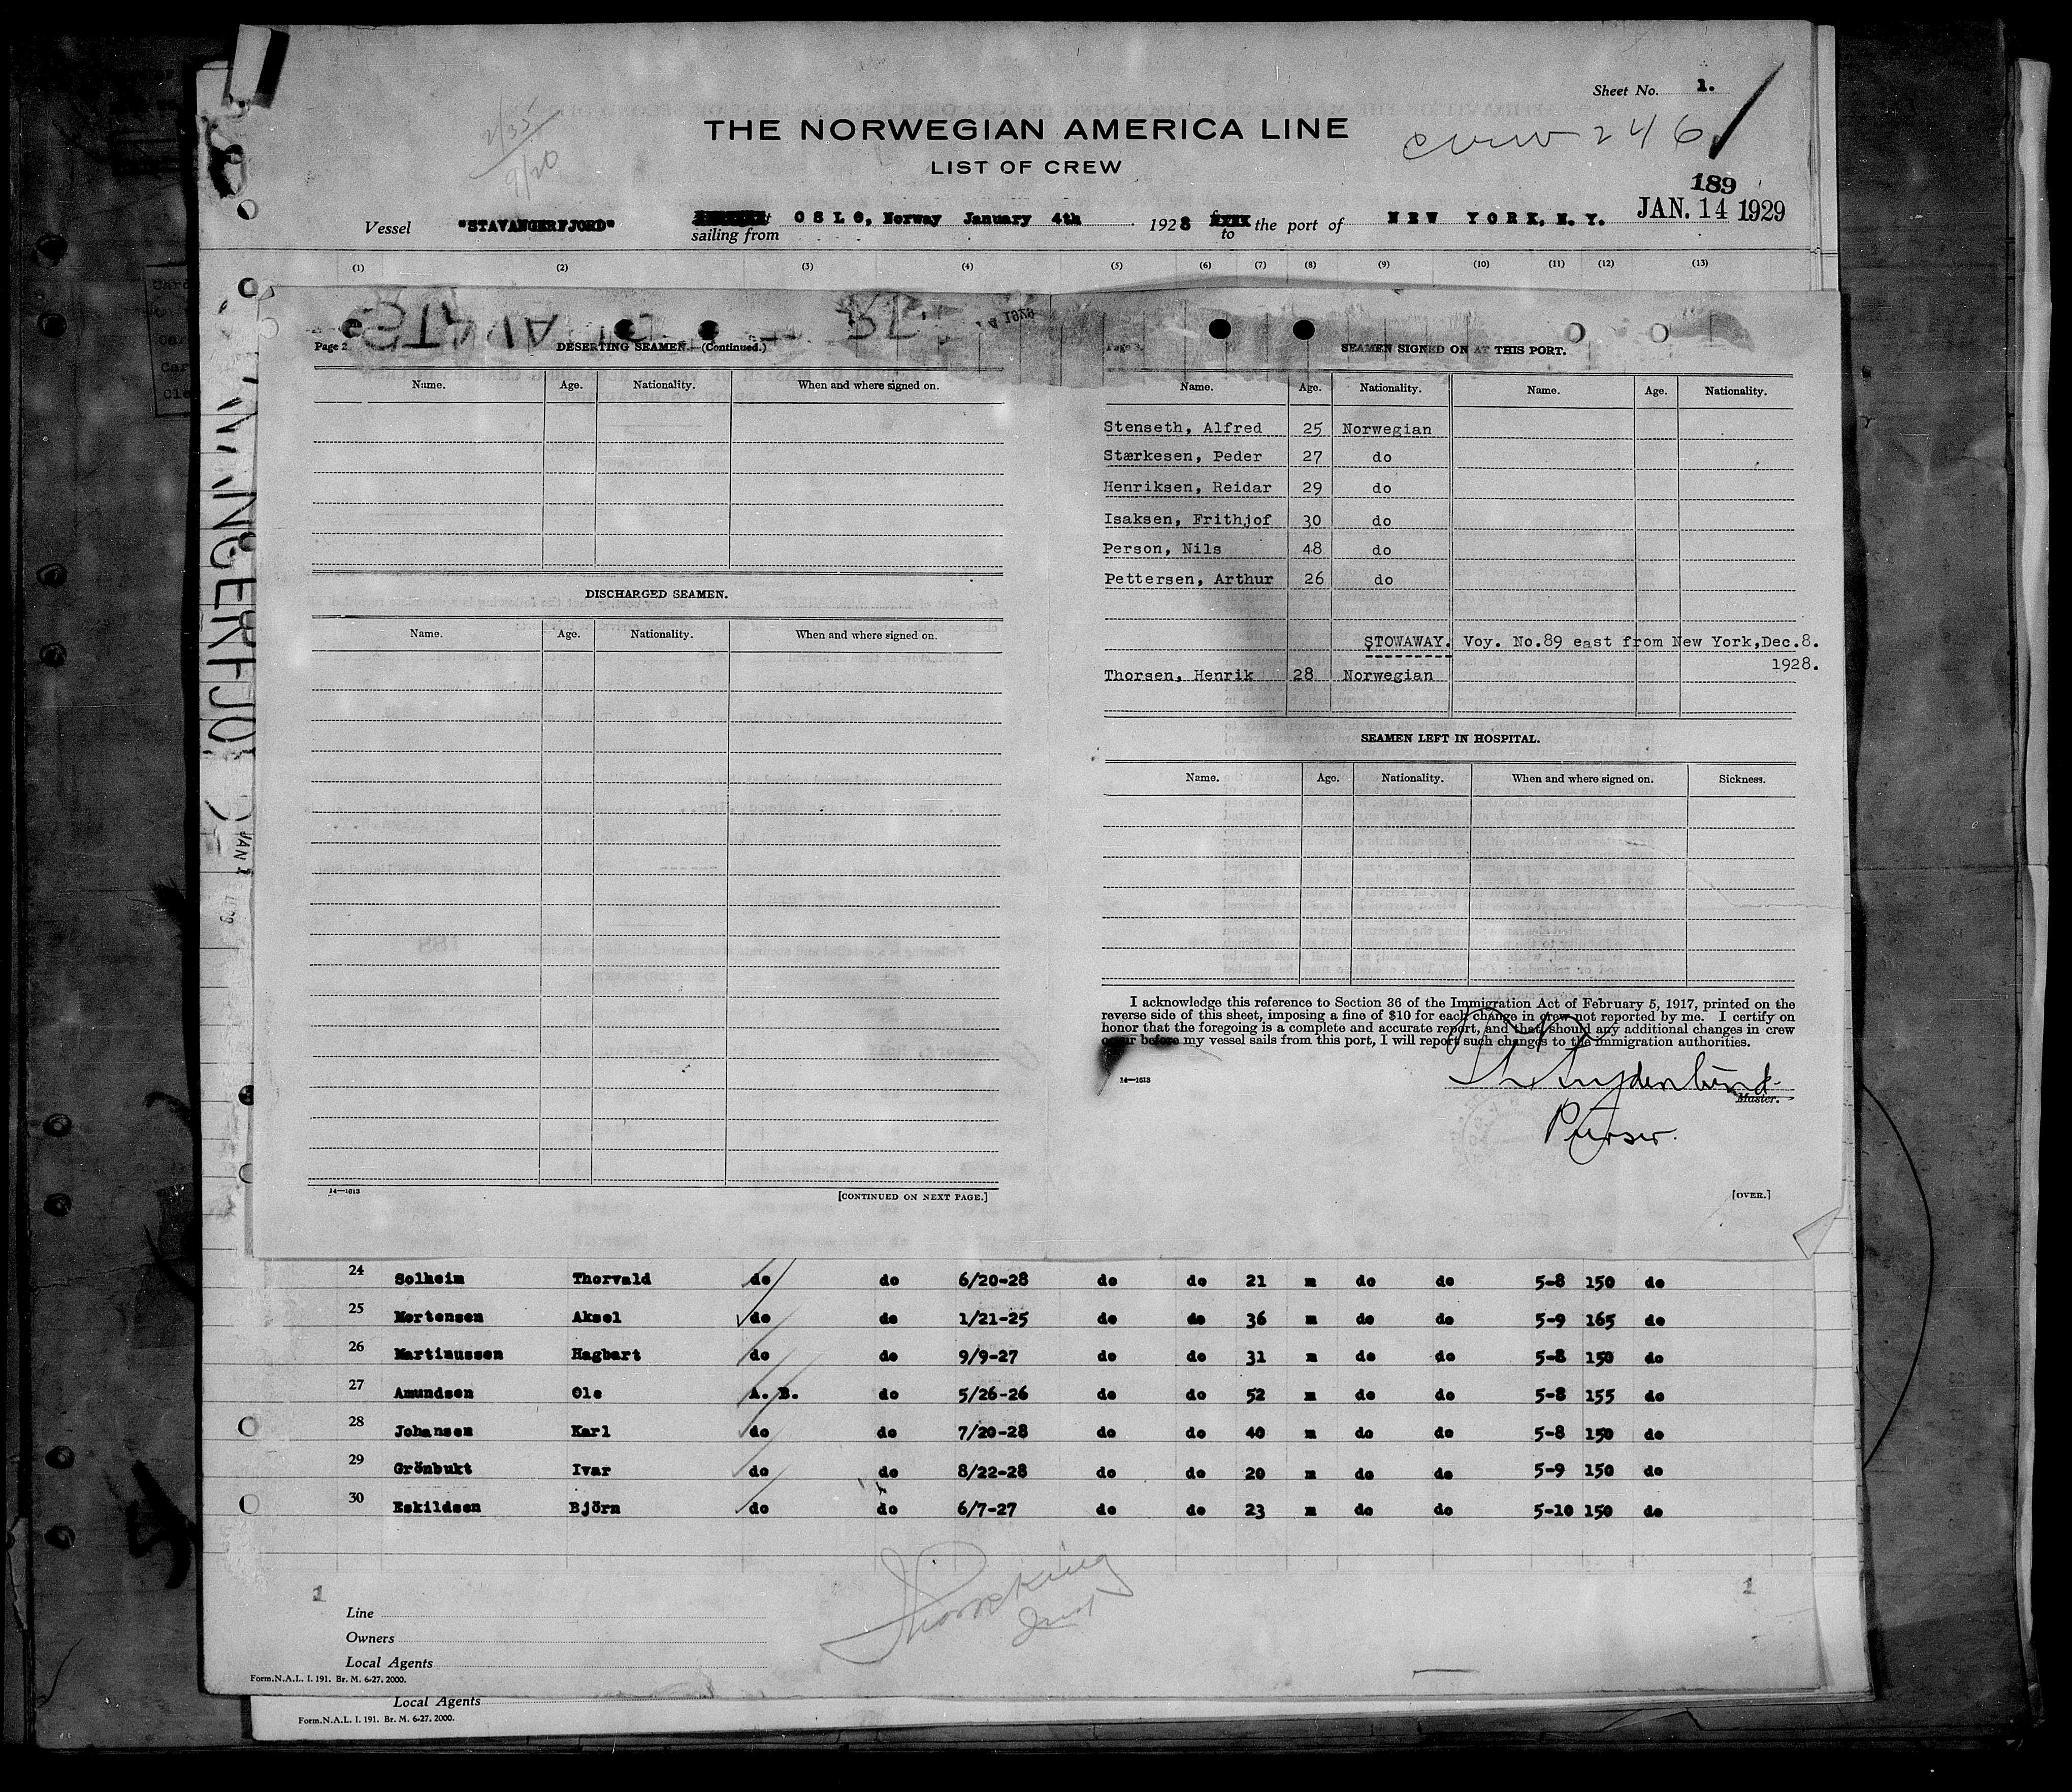 Sheet No. 1.
THE NORWEGIAN AMERICA LINE
crew 246
LIST OF CREW
2/35
9/20
189
Vessel "STAVANGERFJORD" sailing from OSLO, Norway January 4th 1928 to the port of NEW YORK, N. Y. JAN. 14 1929
(1) (2) (3) (4) (5) (6) (7) (8) (9) (10) (11) (12) (13)
Page 2 DESERTING SEAMEN.—(Continued.)
Name. Age. Nationality. When and where signed on.
DISCHARGED SEAMEN.
Name. Age. Nationality. When and where signed on.
14—1613 [CONTINUED ON NEXT PAGE.]
Page 3. SEAMEN SIGNED ON AT THIS PORT.
Name. Age. Nationality. Name. Age. Nationality.
Stenseth, Alfred 25 Norwegian
Stærkesen, Peder 27 do
Henriksen, Reidar 29 do
Isaksen, Frithjof 30 do
Person, Nils 48 do
Pettersen, Arthur 26 do
STOWAWAY. Voy. No.89 east from New York,Dec.8.
1928.
Thorsen, Henrik 28 Norwegian
SEAMEN LEFT IN HOSPITAL.
Name. Age. Nationality. When and where signed on. Sickness.
I acknowledge this reference to Section 36 of the Immigration Act of February 5, 1917, printed on the
reverse side of this sheet, imposing a fine of $10 for each change in crew not reported by me. I certify on
honor that the foregoing is a complete and accurate report, and that should any additional changes in crew
occur before my vessel sails from this port, I will report such changes to the immigration authorities.
14—1613
Master.
Purser.
[OVER.]
24 Solheim Thorvald do do 6/20-28 do do 21 m do do 5-8 150 do
25 Mortensen Aksel do do 1/21-25 do do 36 m do do 5-9 165 do
26 Martinussen Hagbart do do 9/9-27 do do 31 m do do 5-8 150 do
27 Amundsen Ole A. B. do 5/26-26 do do 52 m do do 5-8 155 do
28 Johansen Karl do do 7/20-28 do do 40 m do do 5-8 150 do
29 Grönbukt Ivar do do 8/22-28 do do 20 m do do 5-9 150 do
30 Eskildsen Björn do do 6/7-27 do do 23 m do do 5-10 150 do
1 1
Line
Owners
Local Agents
Form.N.A.L. I. 191. Br. M. 6-27. 2000.
Local Agents
Form.N.A.L. I. 191. Br. M. 6-27. 2000.